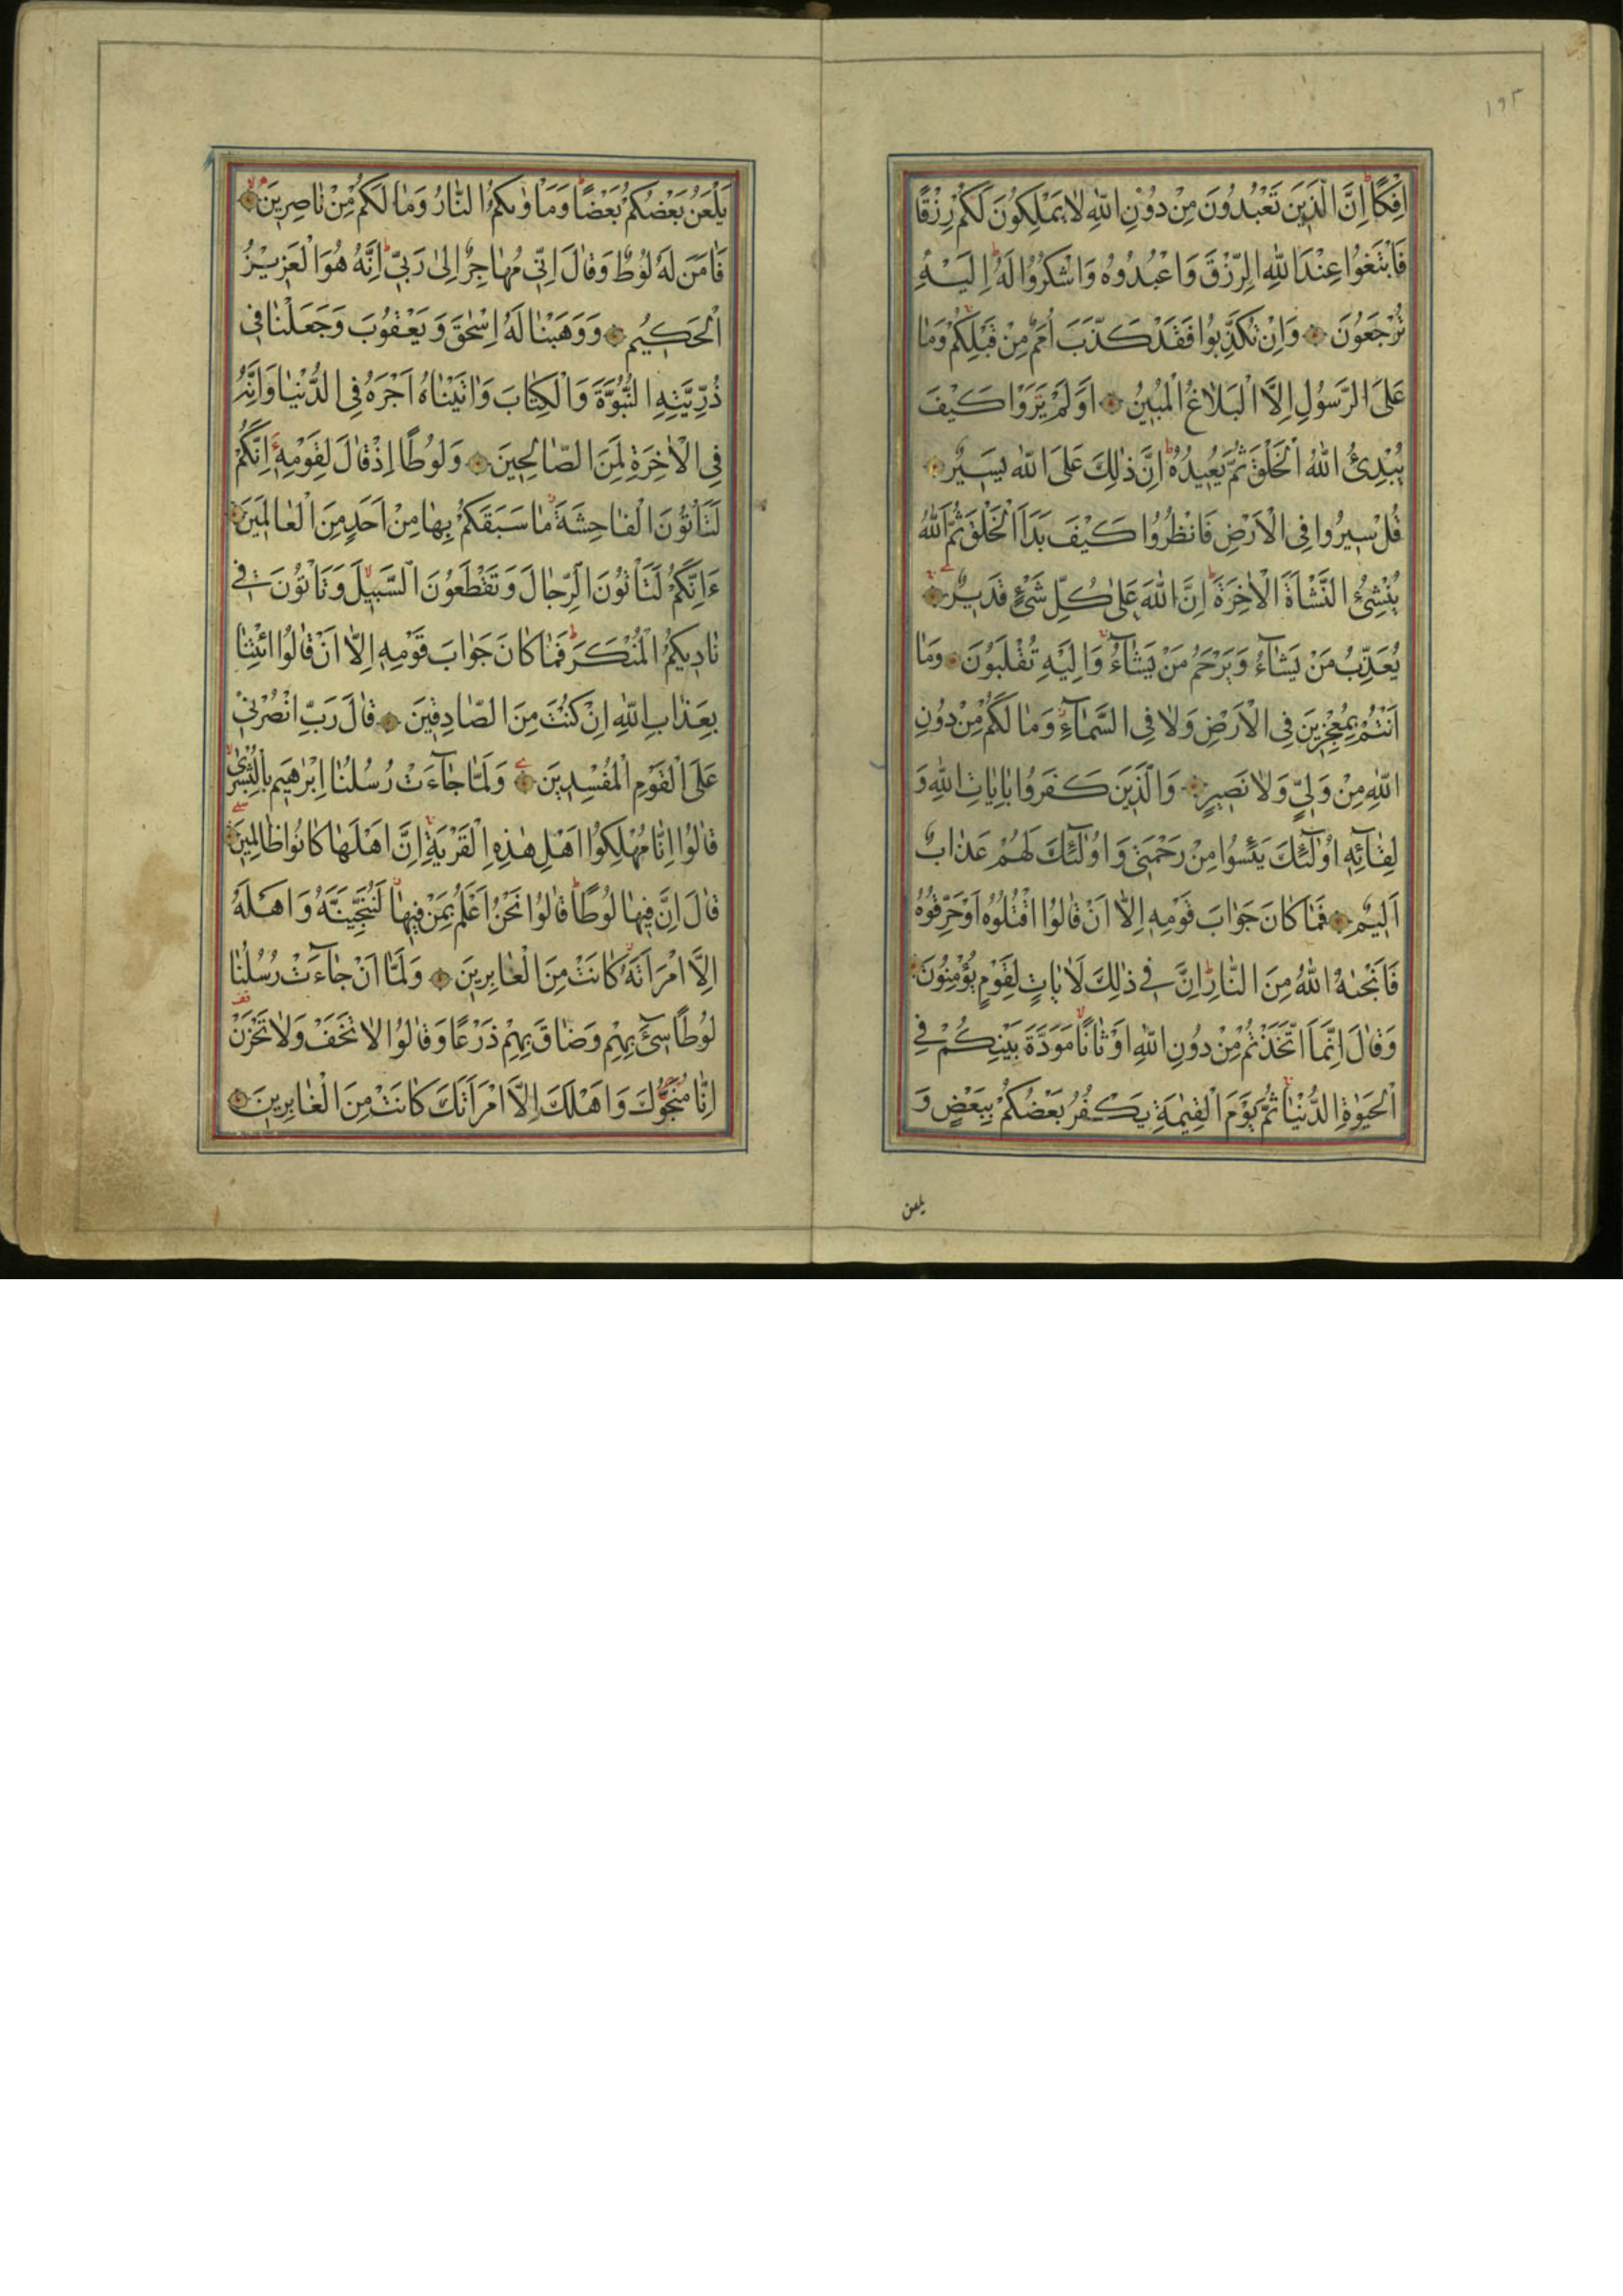 ١٩٣
اِفْكًا اِنَّ الَّذ۪ينَ تَعْبُدُونَ مِنْ دُونِ اللّٰهِ لَا يَمْلِكُونَ لَكُمْ رِزْقًا
فَابْتَغُوا عِنْدَ اللّٰهِ الرِّزْقَ وَاعْبُدُوهُ وَاشْكُرُوا لَهُ اِلَيْهِ
تُرْجَعُونَ وَاِنْ تُكَذِّبُوا فَقَدْ كَذَّبَ اُمَمٌ مِنْ قَبْلِكُمْ وَمَا
عَلَى الرَّسُولِ اِلَّا الْبَلَاغُ الْمُب۪ينُ اَوَلَمْ يَرَوْا كَيْفَ
يُبْدِئُ اللّٰهُ الْخَلْقَ ثُمَّ يُع۪يدُهُ اِنَّ ذٰلِكَ عَلَى اللّٰهِ يَس۪يرٌ
قُلْ س۪يرُوا فِي الْاَرْضِ فَانْظُرُوا كَيْفَ بَدَاَ الْخَلْقَ ثُمَّ اللّٰهُ
يُنْشِئُ النَّشْاَةَ الْاٰخِرَةَ اِنَّ اللّٰهَ عَلٰى كُلِّ شَيْءٍ قَد۪يرٌ
يُعَذِّبُ مَنْ يَشَآءُ وَيَرْحَمُ مَنْ يَشَآءُ وَاِلَيْهِ تُقْلَبُونَ وَمَا
اَنْتُمْ بِمُعْجِز۪ينَ فِي الْاَرْضِ وَلَا فِي السَّمَآءِ وَمَا لَكُمْ مِنْ دُونِ
اللّٰهِ مِنْ وَلِيٍّ وَلَا نَص۪يرٍ وَالَّذ۪ينَ كَفَرُوا بِاٰيَاتِ اللّٰهِ وَ
لِقَآئِه۪ٓ اُولٰٓئِكَ يَئِسُوا مِنْ رَحْمَت۪ي وَاُولٰٓئِكَ لَهُمْ عَذَابٌ
اَل۪يمٌ فَمَا كَانَ جَوَابَ قَوْمِه۪ٓ اِلَّٓا اَنْ قَالُوا اقْتُلُوهُ اَوْ حَرِّقُوهُ
فَاَنْجٰيهُ اللّٰهُ مِنَ النَّارِ اِنَّ ف۪ي ذٰلِكَ لَاٰيَاتٍ لِقَوْمٍ يُؤْمِنُونَ
وَقَالَ اِنَّمَا اتَّخَذْتُمْ مِنْ دُونِ اللّٰهِ اَوْثَانًا مَوَدَّةَ بَيْنِكُمْ فِي
الْحَيٰوةِ الدُّنْيَا ثُمَّ يَوْمَ الْقِيٰمَةِ يَكْفُرُ بَعْضُكُمْ بِبَعْضٍ وَ
يلعن
يَلْعَنُ بَعْضُكُمْ بَعْضًا وَمَاْوٰيكُمُ النَّارُ وَمَا لَكُمْ مِنْ نَاصِر۪ينَ
فَاٰمَنَ لَهُ لُوطٌ وَقَالَ اِنّ۪ي مُهَاجِرٌ اِلٰى رَبّ۪ي اِنَّهُ هُوَ الْعَز۪يزُ
الْحَك۪يمُ وَوَهَبْنَا لَهُ اِسْحٰقَ وَيَعْقُوبَ وَجَعَلْنَا ف۪ي
ذُرِّيَّتِهِ النُّبُوَّةَ وَالْكِتَابَ وَاٰتَيْنَاهُ اَجْرَهُ فِي الدُّنْيَا وَاِنَّهُ
فِي الْاٰخِرَةِ لَمِنَ الصَّالِح۪ينَ وَلُوطًا اِذْ قَالَ لِقَوْمِه۪ٓ اِنَّكُمْ
لَتَاْتُونَ الْفَاحِشَةَ مَا سَبَقَكُمْ بِهَا مِنْ اَحَدٍ مِنَ الْعَالَم۪ينَ
ءَاِنَّكُمْ لَتَاْتُونَ الرِّجَالَ وَتَقْطَعُونَ السَّب۪يلَ وَتَاْتُونَ ف۪ي
نَاد۪يكُمُ الْمُنْكَرَ فَمَا كَانَ جَوَابَ قَوْمِه۪ٓ اِلَّٓا اَنْ قَالُوا ائْتِنَا
بِعَذَابِ اللّٰهِ اِنْ كُنْتَ مِنَ الصَّادِق۪ينَ قَالَ رَبِّ انْصُرْن۪ي
عَلَى الْقَوْمِ الْمُفْسِد۪ينَ وَلَمَّا جَآءَتْ رُسُلُنَا اِبْرٰه۪يمَ بِالْبُشْرٰى
قَالُوا اِنَّا مُهْلِكُوا اَهْلِ هٰذِهِ الْقَرْيَةِ اِنَّ اَهْلَهَا كَانُوا ظَالِم۪ينَ
قَالَ اِنَّ ف۪يهَا لُوطًا قَالُوا نَحْنُ اَعْلَمُ بِمَنْ ف۪يهَا لَنُنَجِّيَنَّهُ وَاَهْلَهُ
اِلَّا امْرَاَتَهُ كَانَتْ مِنَ الْغَابِر۪ينَ وَلَمَّا اَنْ جَآءَتْ رُسُلُنَا
لُوطًا س۪ٓيءَ بِهِمْ وَضَاقَ بِهِمْ ذَرْعًا وَقَالُوا لَا تَخَفْ وَلَا تَحْزَنْ
اِنَّا مُنَجُّوكَ وَاَهْلَكَ اِلَّا امْرَاَتَكَ كَانَتْ مِنَ الْغَابِر۪ينَ